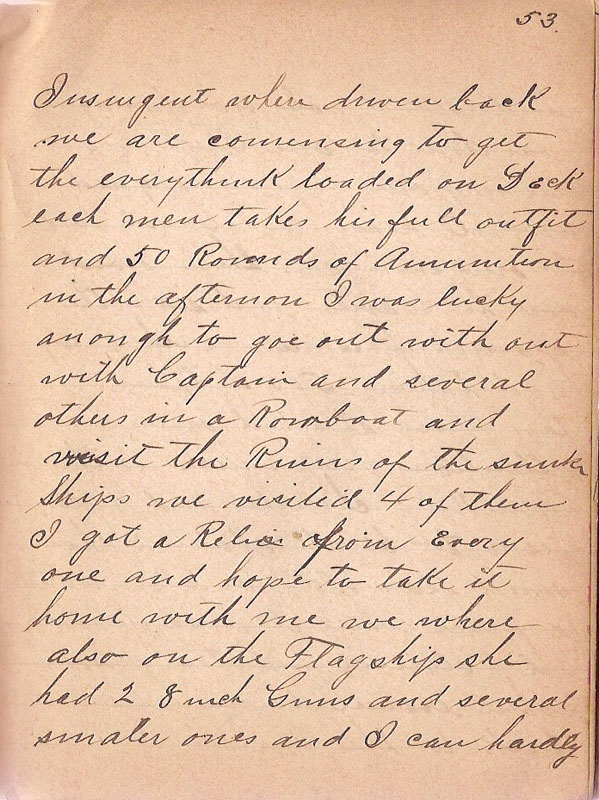 53.
Insurgent where driven back
we are comensing to get
the everythink loaded on Deck
each men takes his full outfit
and 50 Rounds of Amunition
in the afternon I was lucky
anongh to goe out with out
with Captain and several
others in a Rowboat and
visit the Ruins of the sunken
Ships we visited 4 of them
I got a Relic from Every
one and hope to take it
home with me we where
also on the Flagship she
had 2 8 inch Guns and several
smaler ones and I can hardly